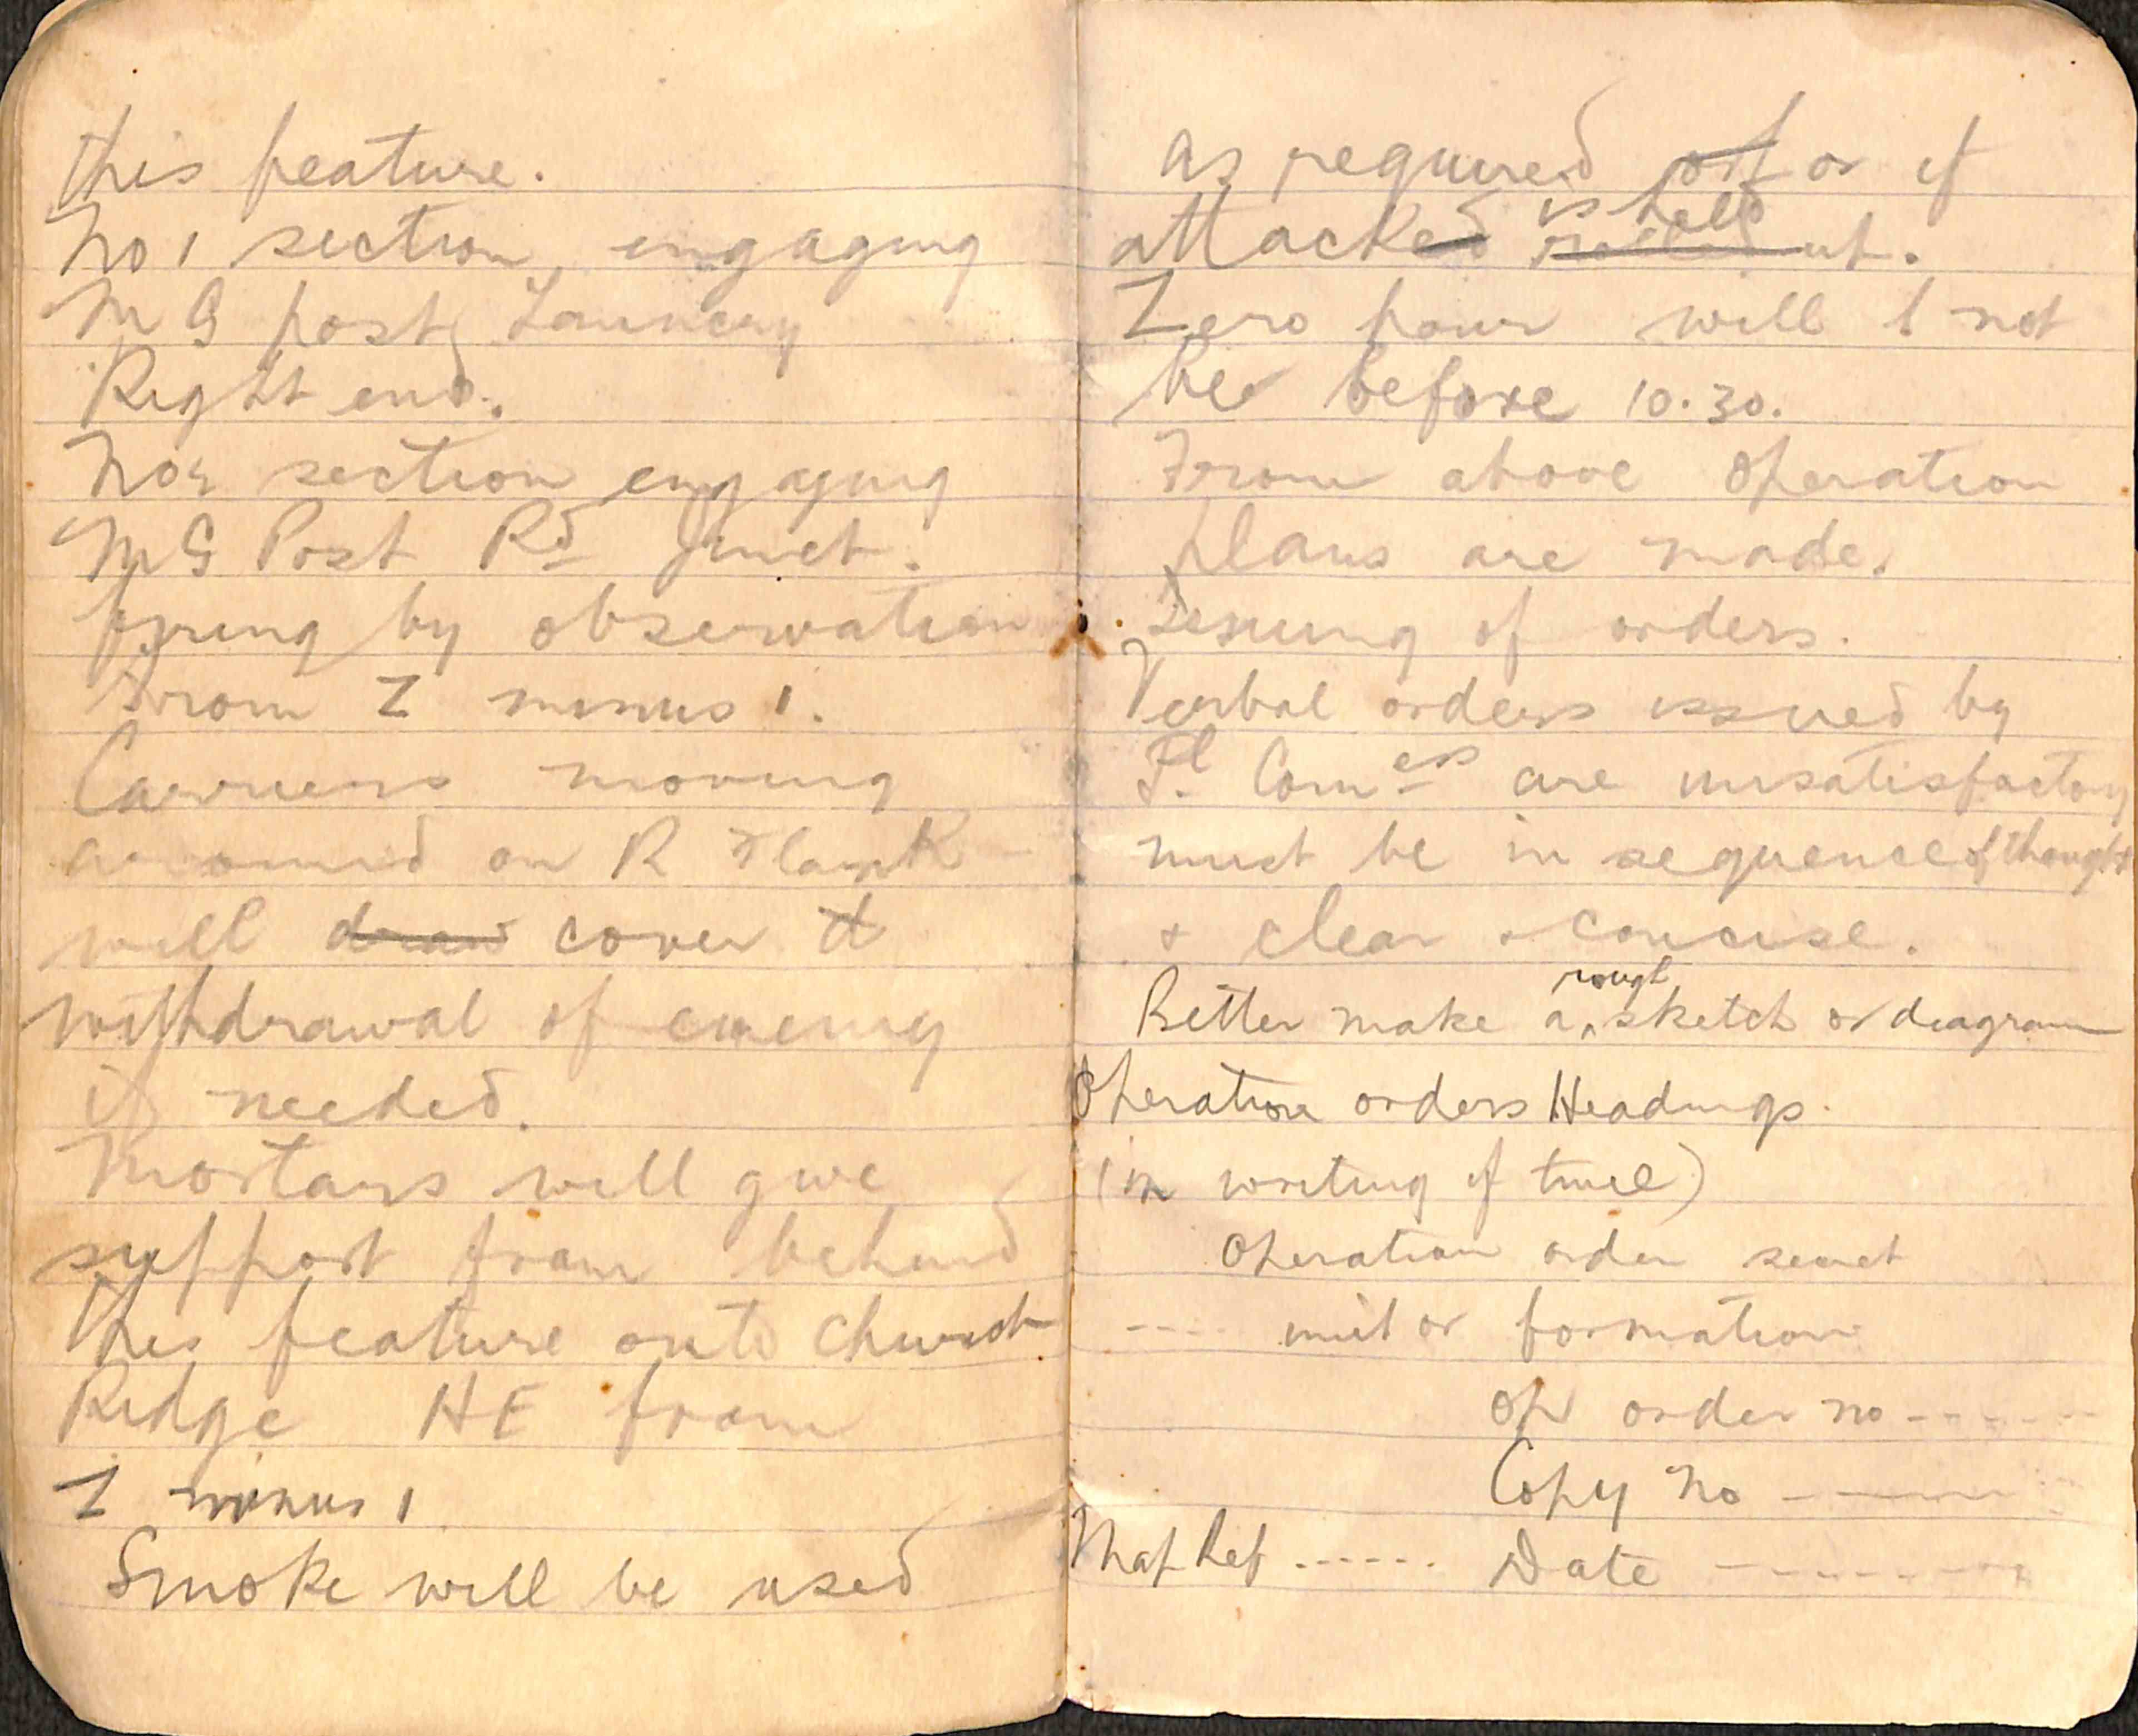 this feature.
No 1 section engaging
MG post
Right end.
No section engaging
MG Post Rd Junct.
firing by observation
From Z minus 1.
Carriers moving
around on R Flank
will draw cover
withdrawal of enemy
if needed.
Mortars will give
support from behind
this feature onto Church
Ridge HE from
Z minus 1
Smoke will be used
as required or if
attacked is held up.
Zero hour will not
be before 10.30.
From above operation
plans are made.
Issuing of orders.
Verbal orders issued by
Pl. Comers are unsatisfactory
must be in sequence of thought
+ clear + concise.
Better make a rough sketch or diagram
Operation orders Headings.
(in writing if time)
Operation order secret
---- unit or formation
Op order no ------
Copy No ------
Map Ref ...... Date --------